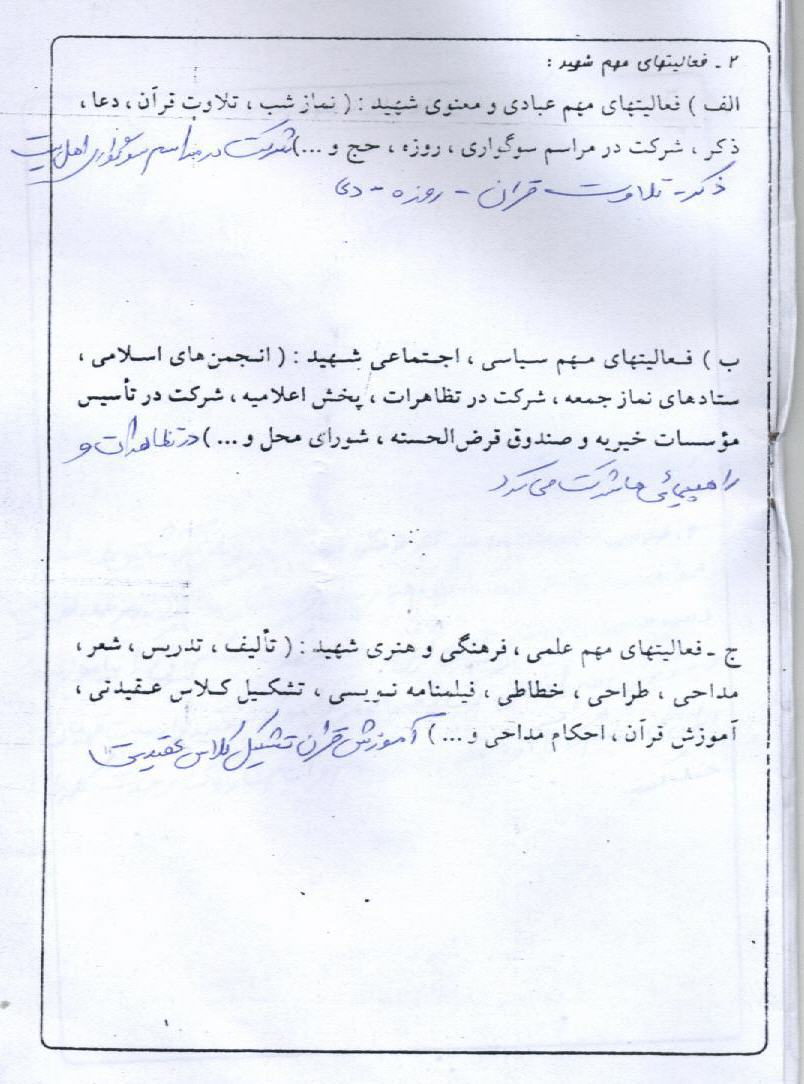 ۲ ـ فعالیتهای مهم شهید :
الف ) فعالیتهای مهم عبادی و معنوی شهید : ( نماز شب ، تلاوت قرآن ، دعا ،
ذکر ، شرکت در مراسم سوگواری ، روزه ، حج و ...) شرکت در مراسم سوگواری اهل بیت
ذکر - تلاوت قران - روزه - دعا
ب ) فعالیتهای مهم سیاسی ، اجتماعی شهید : ( انجمن‌های اسلامی ،
ستادهای نماز جمعه ، شرکت در تظاهرات ، پخش اعلامیه ، شرکت در تأسیس
مؤسسات خیریه و صندوق قرض‌الحسنه ، شورای محل و ... ) در تظاهرات و
راهپیمائی ها شرکت می کرد
ج ـ فعالیتهای مهم علمی ، فرهنگی و هنری شهید : ( تألیف ، تدریس ، شعر ،
مداحی ، طراحی ، خطاطی ، فیلمنامه نویسی ، تشکیل کلاس عقیدتی ،
آموزش قرآن ، احکام مداحی و ... ) آموزش قران تشکیل کلاس عقیدتی